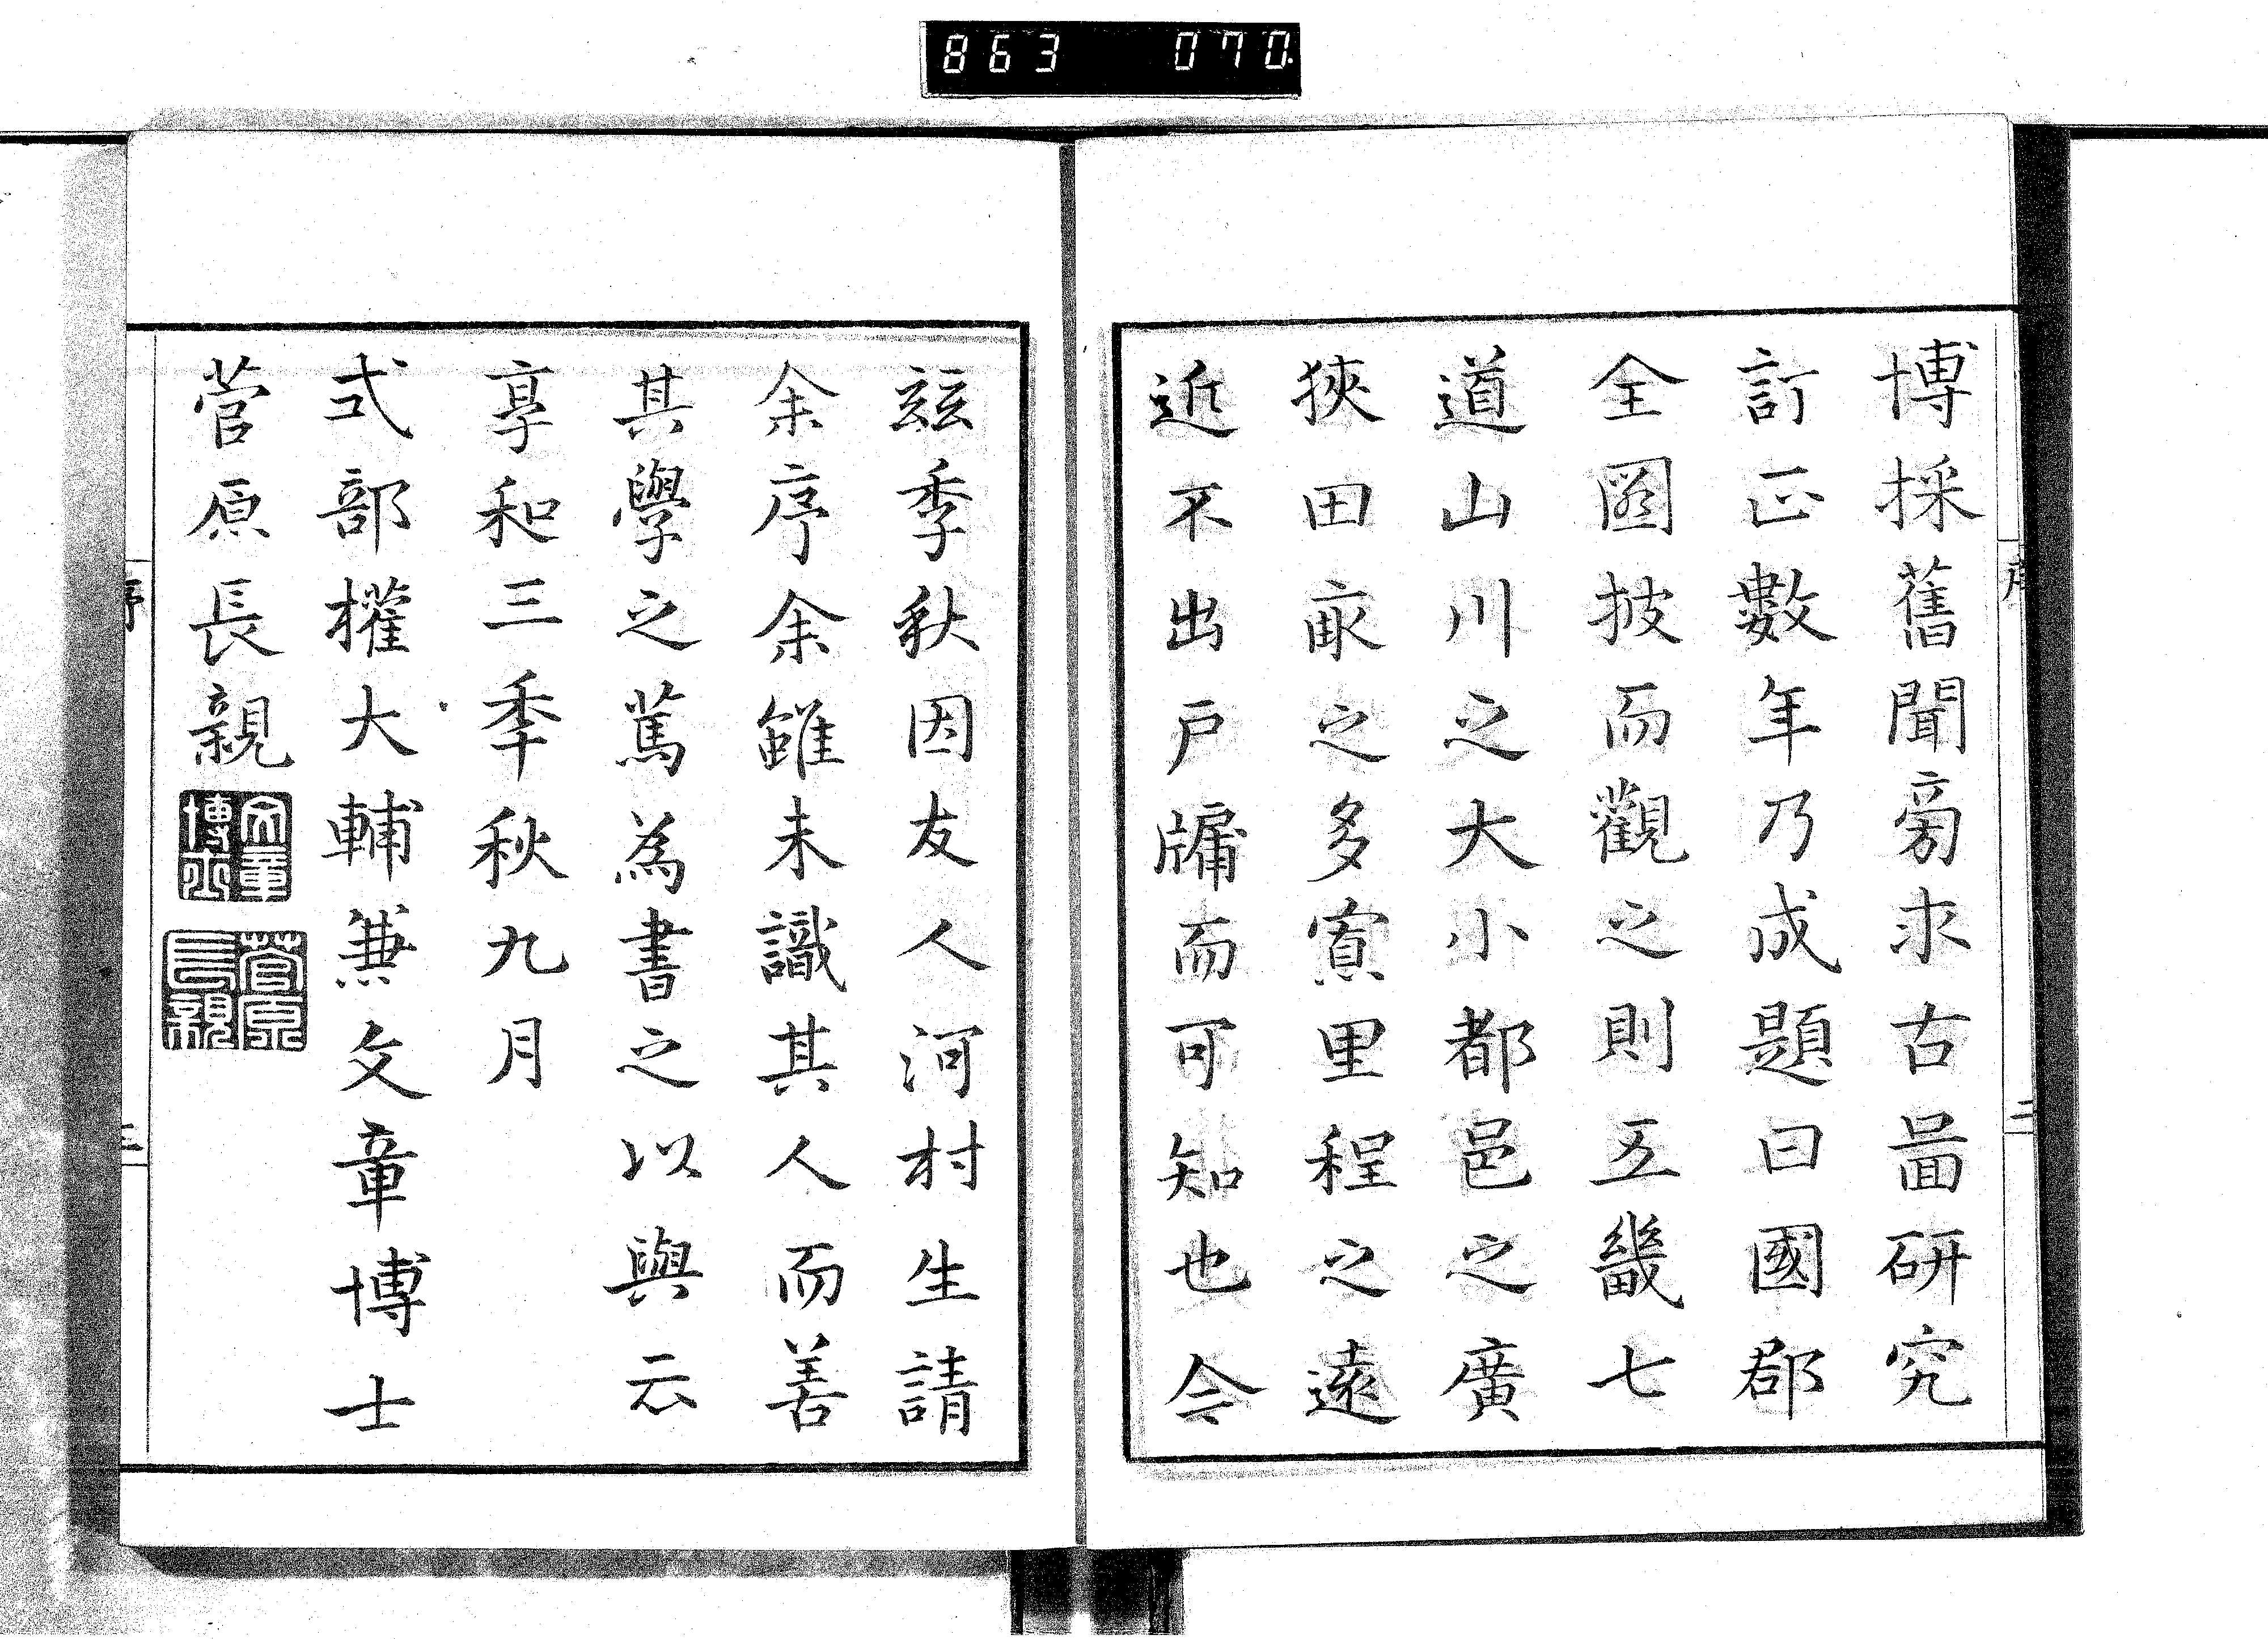 863 070
序
二
博採舊聞旁求古啚研究
訂正數年乃成題曰國郡
全圖披而觀之則五畿七
道山川之大小都邑之廣
狹田畝之多寡里程之遠
近不出戶牖而可知也今
茲季秋因友人河村生請
余序余雖未識其人而善
其學之篤為書之以與云
享和三季秋九月
式部權大輔兼文章博士
菅原長親
文章博士
菅原長親
序
三